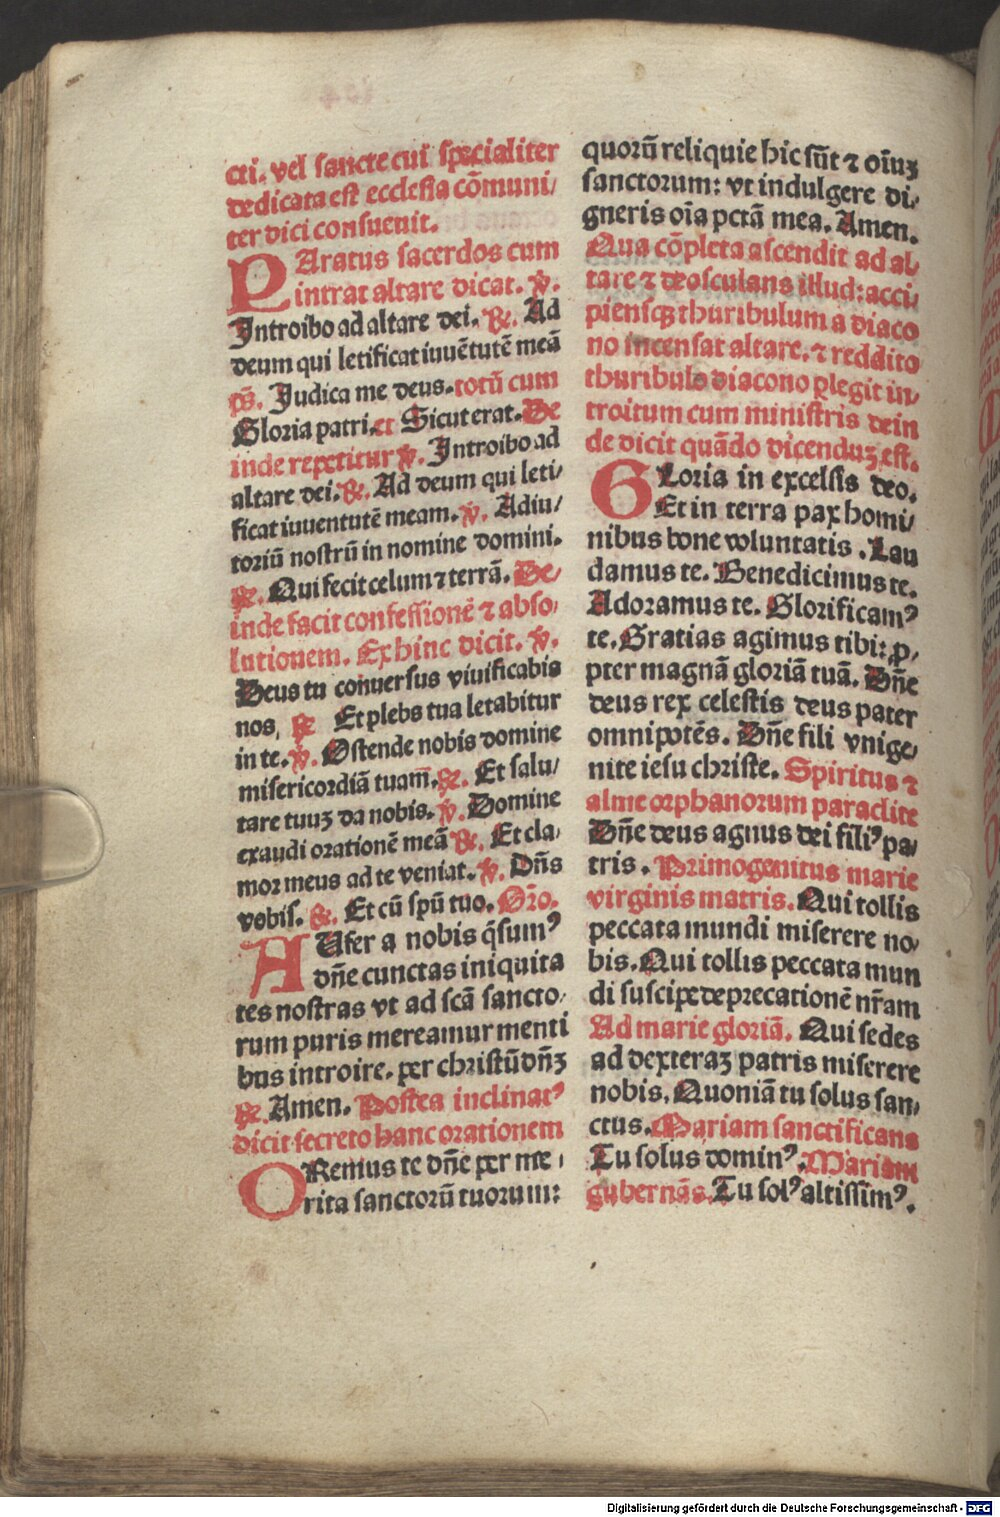 cti. vel sancte cui specialiter
dedicata est ecclesia cōmuni/
ter dici consueuit.
PAratus sacerdos cum
intrat altare dicat. ℣.
Introibo ad altare dei. ℟. Ad
deum qui letificat iuuētutē meā
p̄s. Judica me deus. totū cum
Gloria patri. et Sicut erat. De
inde repetitur ℣. Introibo ad
altare dei. ℟. Ad deum qui leti/
ficat iuuentutē meam. ℣. Adiu/
toriū nostrū in nomine domini.
℟. Qui fecit celum ⁊ terrā. De/
inde facit confessionē ⁊ abso/
lutionem. Ex hinc dicit. ℣.
Deus tu conuersus viuificabis
nos. ℟ Et plebs tua letabitur
in te. ℣. Ostende nobis domine
misericordiā tuam̄. ℟. Et salu/
tare tuuꝫ da nobis. ℣. Domine
exaudi orationē meā ℟. Et cla/
mor meus ad te veniat. ℣. Dn̄s
vobis. ℟. Et cū spū tuo. Or̄o.
AUfer a nobis q̄sumꝰ
dn̄e cunctas iniquita
tes nostras vt ad scā sancto/
rum puris mereamur menti
bus introire. per christū dn̄ꝫ
℟. Amen. Postea inclinatꝰ
dicit secreto hanc orationem
ORemus te dn̄e per me/
rita sanctorū tuorum:
quorū reliquie hic sūt ⁊ oīuꝫ
sanctorum: vt indulgere di/
gneris oīa pctā mea. Amen.
Qua cōpleta ascendit ad al/
tare ⁊ deosculans illud: acci/
piensqꝫ thuribulum a diaco
no incensat altare. ⁊ reddito
thuribulo diacono ꝑlegit in/
troitum cum ministris dein
de dicit quādo dicenduꝫ est.
GLoria in excelsis deo.
Et in terra pax homi/
nibus bone voluntatis. Lau
damus te. Benedicimus te.
Adoramus te. Glorificamꝰ
te. Gratias agimus tibi: ꝓ/
pter magnā gloriā tuā. Dn̄e
deus rex celestis deus pater
omnipotēs. Dn̄e fili vnige/
nite iesu christe. Spiritus ⁊
alme orphanorum paraclite
Dn̄e deus agnus dei filiꝰ pa/
tris. Primogenitus marie
virginis matris. Qui tollis
peccata mundi miserere no/
bis. Qui tollis peccata mun
di suscipe deprecationē nr̄am
Ad marie gloriā. Qui sedes
ad dexteraꝫ patris miserere
nobis. Quoniā tu solus san/
ctus. Mariam sanctificans
Tu solus dominꝰ. Mariam
gubernās. Tu solꝰ altissimꝰ.
Digitalisierung gefördert durch die Deutsche Forschungsgemeinschaft - DFG